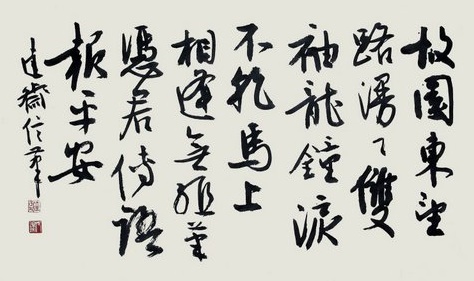 故園東望
路漫々雙
袖龍鐘淚
不乾馬上
相逢無紙筆
憑君傳語
報平安